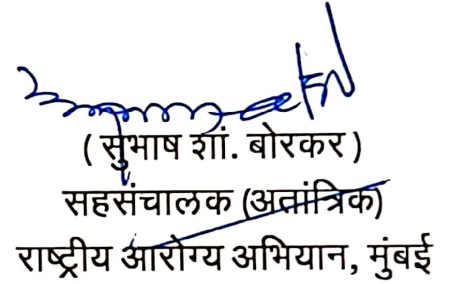 ( सुभाष शां. बोरकर )
सहसंचालक (अतांत्रिक)
राष्ट्रीय आरोग्य अभियान, मुंबई